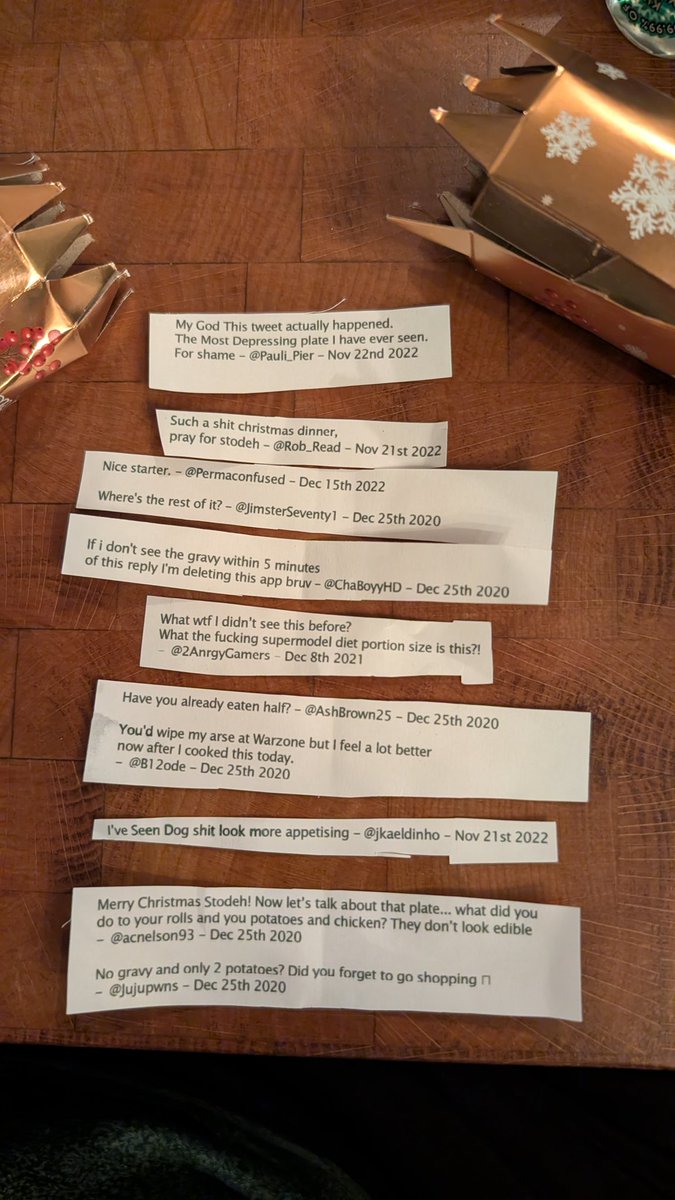 My God This tweet actually happened.
The Most Depressing plate I have ever seen.
For shame – @Pauli_Pier – Nov 22nd 2022
Such a shit christmas dinner,
pray for stodeh – @Rob_Read – Nov 21st 2022
Nice starter. – @Permaconfused – Dec 15th 2022
Where's the rest of it? – @JimsterSeventy1 – Dec 25th 2020
If i don't see the gravy within 5 minutes
of this reply I'm deleting this app bruv – @ChaBoyyHD – Dec 25th 2020
What wtf I didn't see this before?
What the fucking supermodel diet portion size is this?!
– @2AnrgyGamers – Dec 8th 2021
Have you already eaten half? – @AshBrown25 – Dec 25th 2020
You'd wipe my arse at Warzone but I feel a lot better
now after I cooked this today.
– @B12ode – Dec 25th 2020
I've Seen Dog shit look more appetising – @jkaeldinho – Nov 21st 2022
Merry Christmas Stodeh! Now let's talk about that plate... what did you
do to your rolls and you potatoes and chicken? They don't look edible
– @acnelson93 – Dec 25th 2020
No gravy and only 2 potatoes? Did you forget to go shopping
– @Jujupwns – Dec 25th 2020